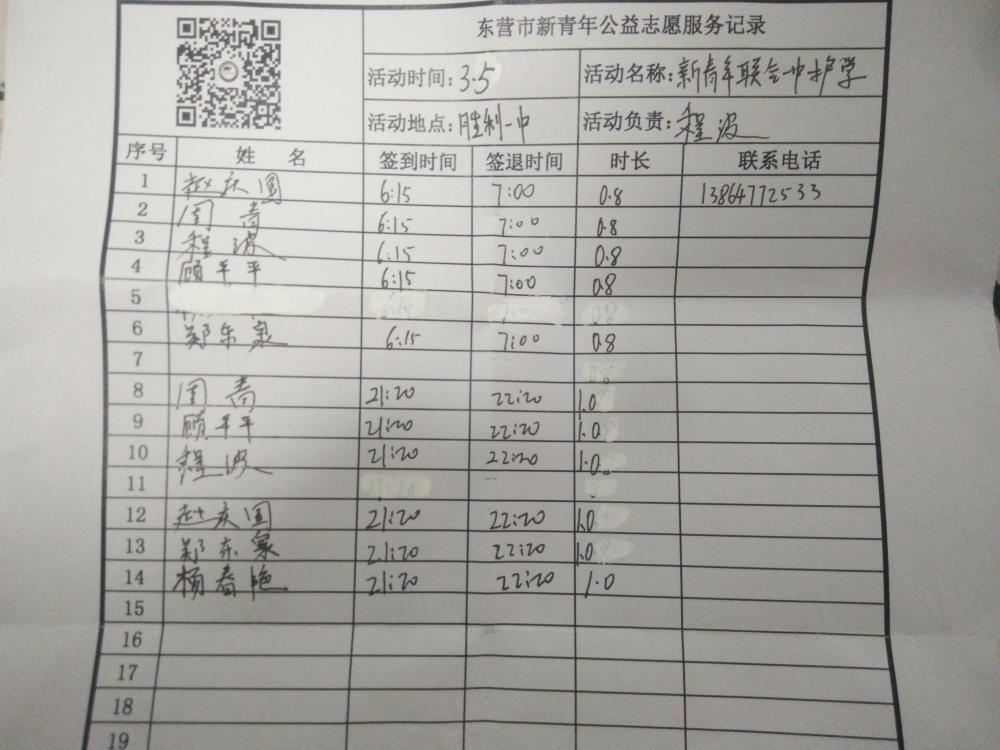 东营市新青年公益志愿服务记录
活动时间: 3.5 活动名称: 新青年联合一中护学
活动地点: 胜利一中 活动负责: 程波
序号 姓 名 签到时间 签退时间 时长 联系电话
1 赵庆国 6:15 7:00 0.8 13864772533
2 周 6:15 7:00 0.8
3 程波 6:15 7:00 0.8
4 顾平平 6:15 7:00 0.8
5
6 郑东泉 6:15 7:00 0.8
7
8 周 21:20 22:20 1.0
9 顾平平 21:20 22:20 1.0
10 程波 21:20 22:20 1.0
11
12 赵庆国 21:20 22:20 1.0
13 郑东泉 21:20 22:20 1.0
14 杨春艳 21:20 22:20 1.0
15
16
17
18
19